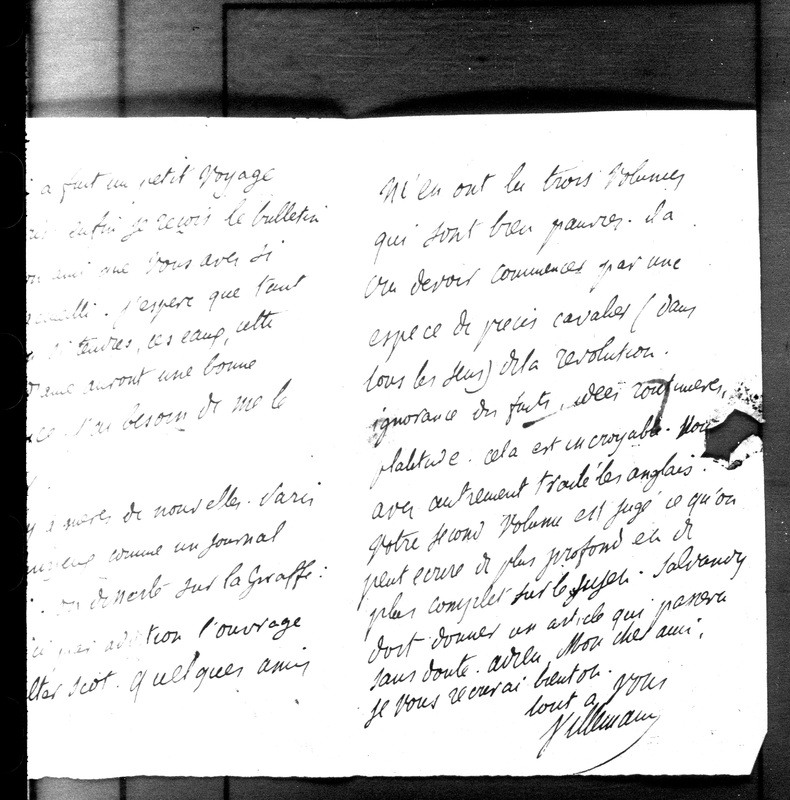 a fait un petit voyage
enfin je reçois le bulletin
ami que vous avez si
j'espere que tant
tendres, ces eaux, cette
auront une bonne
J'ai besoin de me le
de nouvelles. Paris
comme un journal
on disserte sur la Giraffe:
l'ouvrage
Scot. quelques amis
M'en ont lu trois Volumes
qui sont bien pauvres. il a
cru devoir commencer par une
espece de precis cavalier (dans
tous les sens) de la revolution.
ignorance des faits, idées routinieres,
platitude. cela est incroyable. Vous
avez autrement traité les anglais.
Votre second Volume est jugé ce qu'on
peut ecrire de plus profond et de
plus complet sur le sujet. Salvandy
doit donner un article qui passera
sans doute. adieu, Mon cher ami,
je vous recrirai bientot.
tout a vous
Villemain